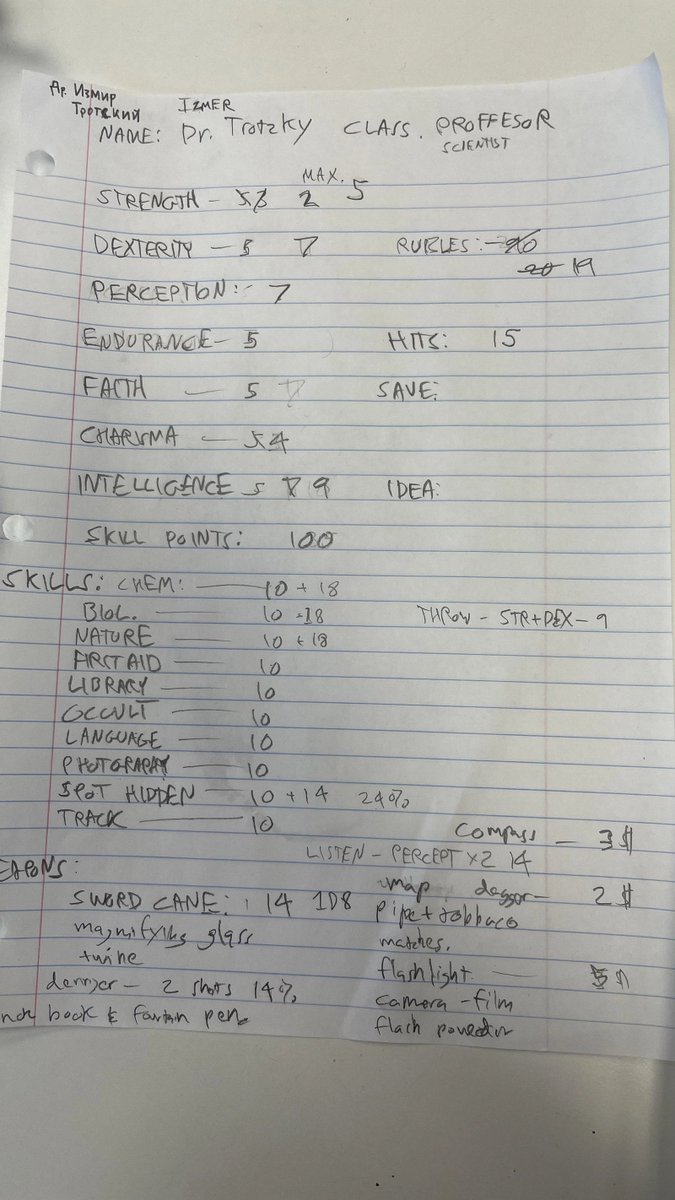 Др. Измир
Тротский
IZMER
NAME: Dr. Trotzky CLASS. PROFFESOR
SCIENTIST
MAX.
STRENGTH - 2 5
DEXTERITY - 5 7 RUBLES: - 20
20 19
PERCEPTION: - 7
ENDURANCE - 5 HITS: 15
FAITH - 5 7 SAVE:
CHARISMA - 5 4
INTELLIGENCE 5 7 9 IDEA:
SKILL POINTS: 100
SKILLS: CHEM: - 10 + 18
BIOL. - 10 - 18 THROW - STR+DEX - 9
NATURE - 10 + 18
FIRST AID - 10
LIBRARY - 10
OCCULT - 10
LANGUAGE - 10
PHOTOGRAPHY - 10
SPOT HIDDEN - 10 + 14 24%
TRACK - 10
compass - 3 $
LISTEN - PERCEPT X2 14
EAPONS:
map daggor - 2 $
SWORD CANE: 14 1D8
pipe + tobbaco
magnifying glass
matches.
twine
flashlight - 5 $
derrjer - 2 shots 14%
camera - film
book & fantain pen
flash powedur